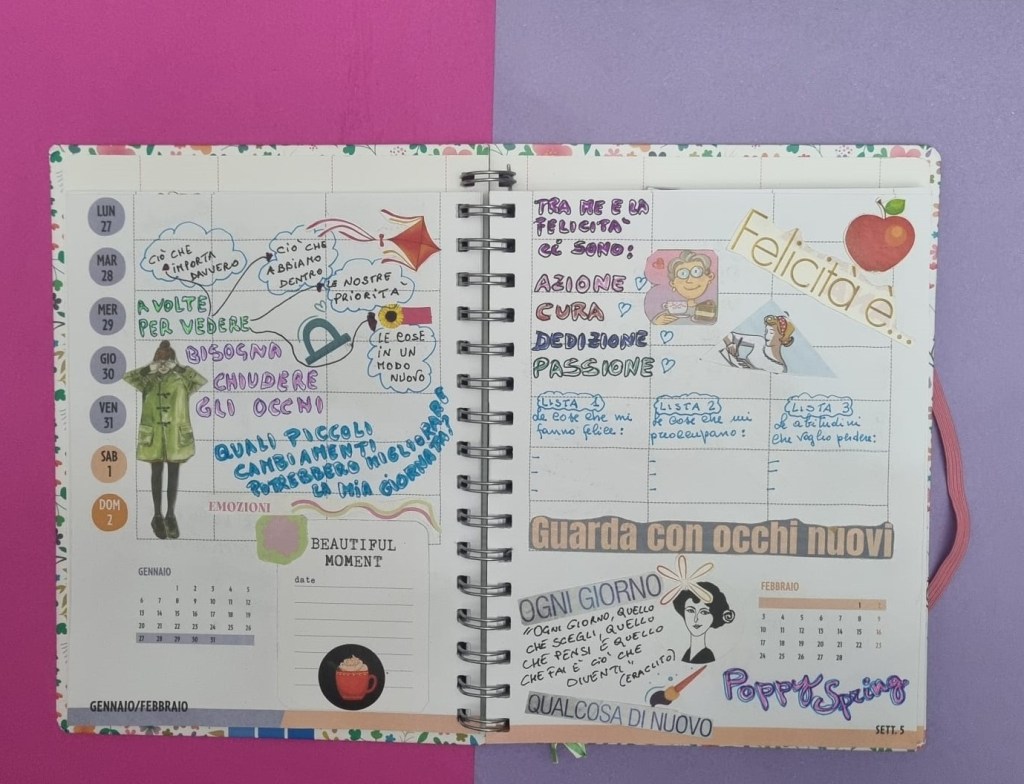 LUN
27
MAR
28
MER
29
GIO
30
VEN
31
SAB
1
DOM
2
CIÒ CHE
IMPORTA
DAVVERO
CIÒ CHE
ABBIAMO
DENTRO
LE NOSTRE
PRIORITÀ
LE COSE
IN UN
MODO
NUOVO
A VOLTE
PER VEDERE
BISOGNA
CHIUDERE
GLI OCCHI
QUALI PICCOLI
CAMBIAMENTI
POTREBBERO MIGLIORARE
LA MIA GIORNATA?
EMOZIONI
BEAUTIFUL
MOMENT
date
GENNAIO
1 2 3 4 5
6 7 8 9 10 11 12
13 14 15 16 17 18 19
20 21 22 23 24 25 26
27 28 29 30 31
GENNAIO/FEBBRAIO
TRA ME E LA
FELICITÀ
CI SONO:
AZIONE
CURA
DEDIZIONE
PASSIONE
Felicità è...
LISTA 1
le cose che mi
fanno felice:
LISTA 2
le cose che mi
preoccupano:
LISTA 3
le abitudini
che voglio perdere:
Guarda con occhi nuovi
OGNI GIORNO
"OGNI GIORNO, QUELLO
CHE SCEGLI, QUELLO
CHE PENSI E QUELLO
CHE FAI È CIÒ CHE
DIVENTI"
(ERACLITO)
QUALCOSA DI NUOVO
FEBBRAIO
1 2
3 4 5 6 7 8 9
10 11 12 13 14 15 16
17 18 19 20 21 22 23
24 25 26 27 28
Poppy Spring
SETT. 5